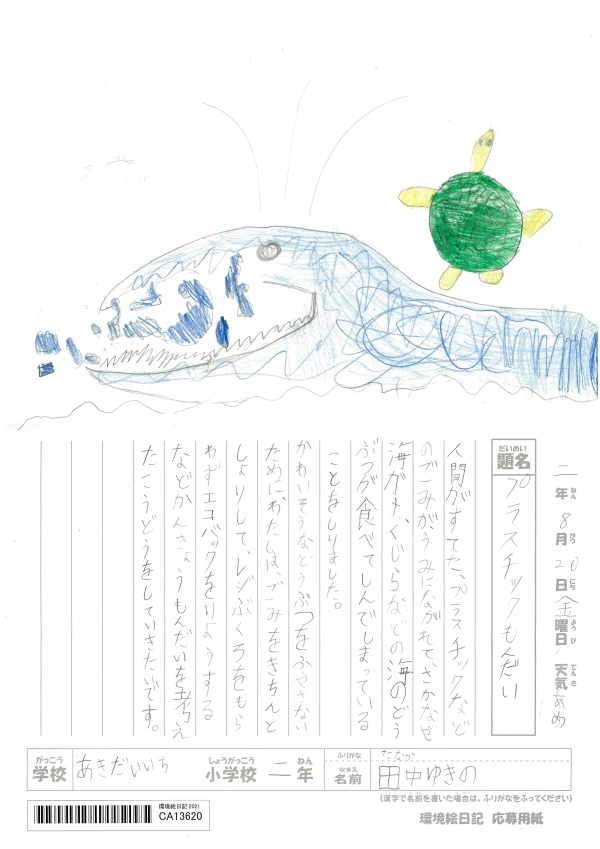 二年8月20日金曜日 天気あめ
ねん がつ にち ようび てんき
だいめい
題名 プラスチックもんだい
人間がすてた、プラスチックなど
のごみがうみにながれて、さかなやせ
海ガメ、くじらなどの海のどう
ぶつが食べてしんでしまっている
ことをしりました。
かわいそうなどうぶつをふやさない
ためにわたしは、ごみをきちんと
しょりして、レジぶくろをもら
わずエコバックをりようする
などかんきょうもんだいを考え
たこうどうをしていきたいです。
がっこう しょうがっこう ねん ふりがな たなか
学校 あきだいいち 小学校 二年 なまえ 名前 田中ゆきの
(漢字で名前を書いた場合は、ふりがなをふってください)
環境絵日記 2021
CA13620
環境絵日記 応募用紙